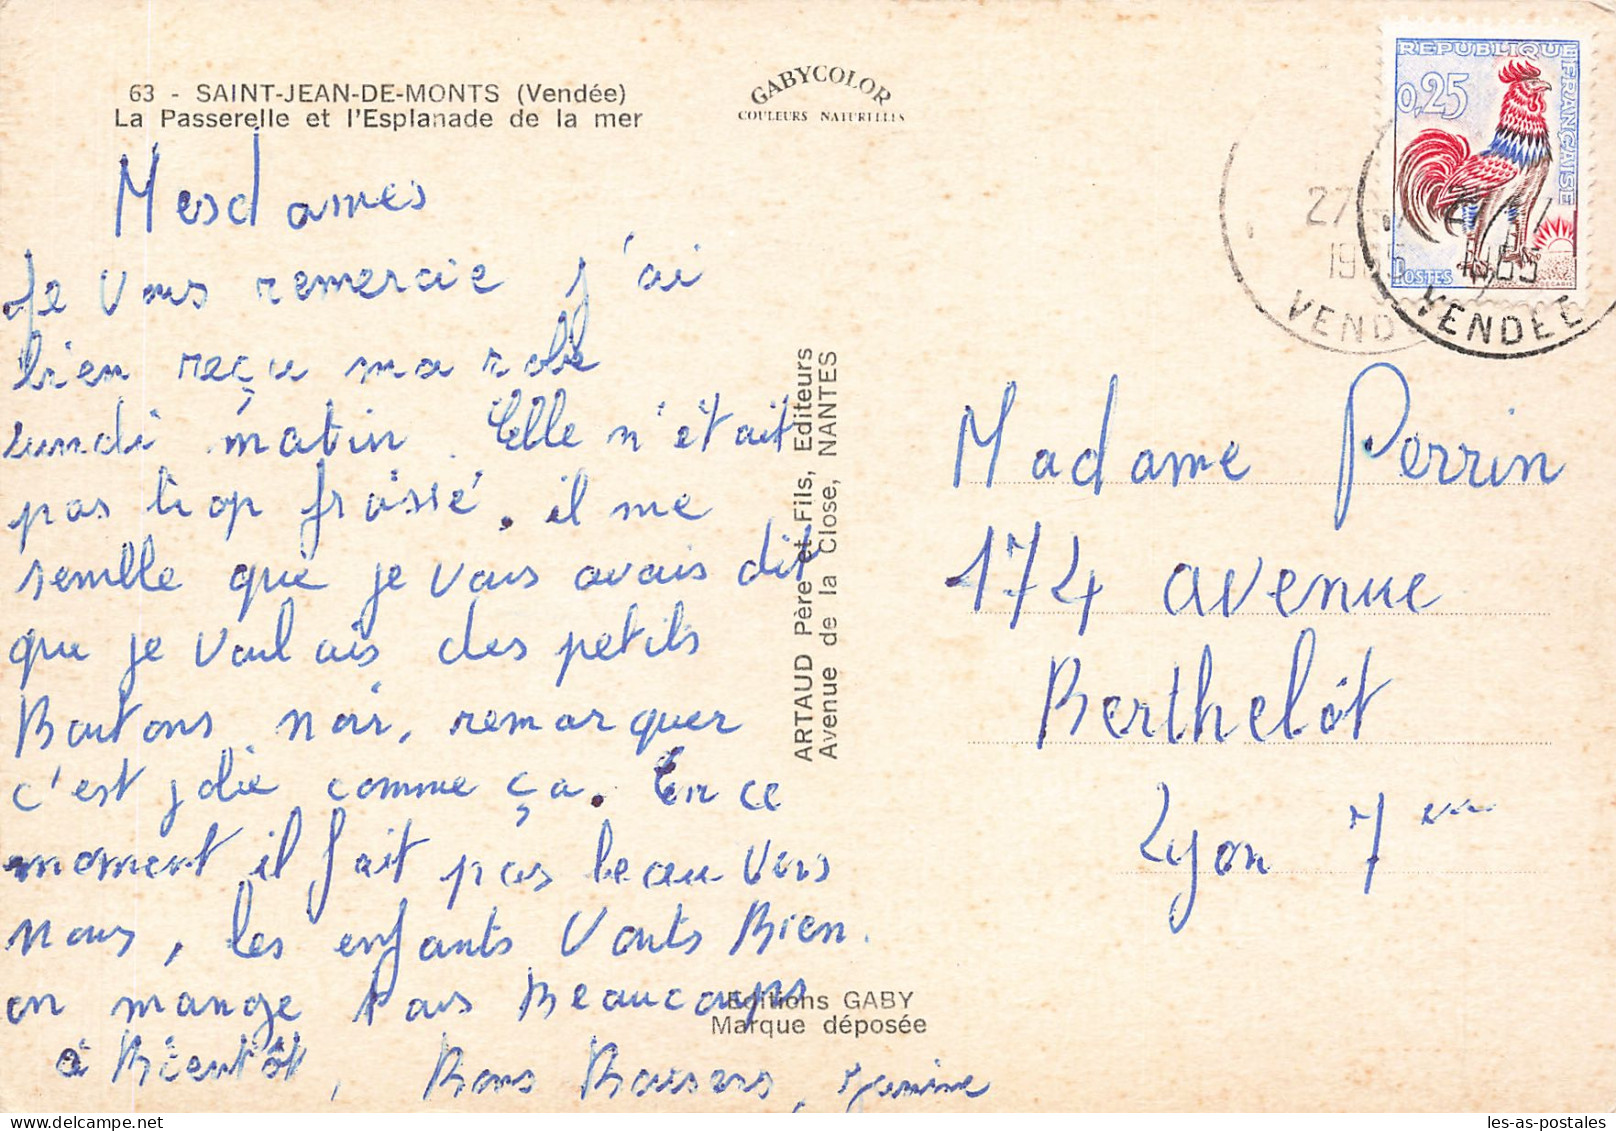 63 - SAINT-JEAN-DE-MONTS (Vendée)
La Passerelle et l'Esplanade de la mer
GABYCOLOR
COULEURS NATURELLES
REPUBLIQUE FRANÇAISE
0,25
POSTES
27
1965
VENDÉE
VEND
Mesdames
Je vous remercie j'ai
bien reçu ma robe
lundi matin. Elle n'était
pas trop froissé. il me
semble que je vous avais dit
que je voulais des petits
Boutons noir, remarquer
c'est jolie comme ça. En ce
moment il fait pas beau vers
nous, les enfants vonts Bien.
on mange tous Beaucoups
à Bientôt, Bons Baisers, Janine
ARTAUD Père et Fils, Editeurs
Avenue de la Close, NANTES
Editions GABY
Marque déposée
Madame Perrin
174 avenue
Berthelôt
Lyon 7 em
les-as-postales